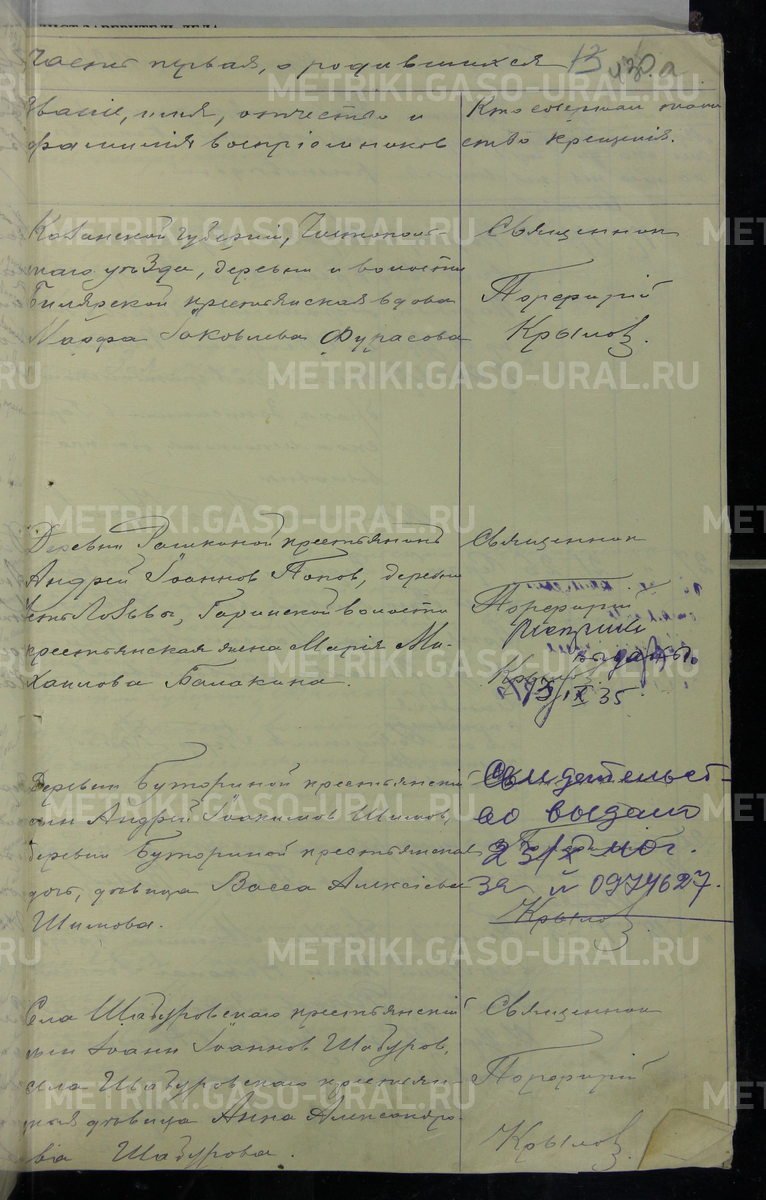 Часть первая, о родившихся 13
Званіе, имя, отчество и
фамилія воспріемниковъ
Кто совершал таин
ство крещенія.
Казанской губерніи, Чистополь-
скаго уѣзда, деревни и волости
Билярской крестьянская вдова
Марфа Іаковлева Фурасова
Священник
Порфирій
Крылов.
Деревни крестьянинъ
Андрей Іоаннов Попов, деревни
Гаринской волости
крестьянская жена Марія Ми-
хаилова Балакина.
Священник
Порфирій
Крылов
выданы.
IX 35
Деревни Буториной крестьянскій
сын Андрей Іоакимов Шимов,
деревни Буториной крестьянская
дочь, девица Васса Алексіева
Шимова.
Свидетельст-
во выдано
23/X 40 г.
за № 0974627.
Крылов.
Села Шабуровскаго крестьянскій
сын Іоанн Іоаннов Шабуров,
села Шабуровскаго крестьян-
ская девица Анна Александро-
ва Шабурова.
Священник
Порфирій
Крылов.
METRIKI.GASO-URAL.RU